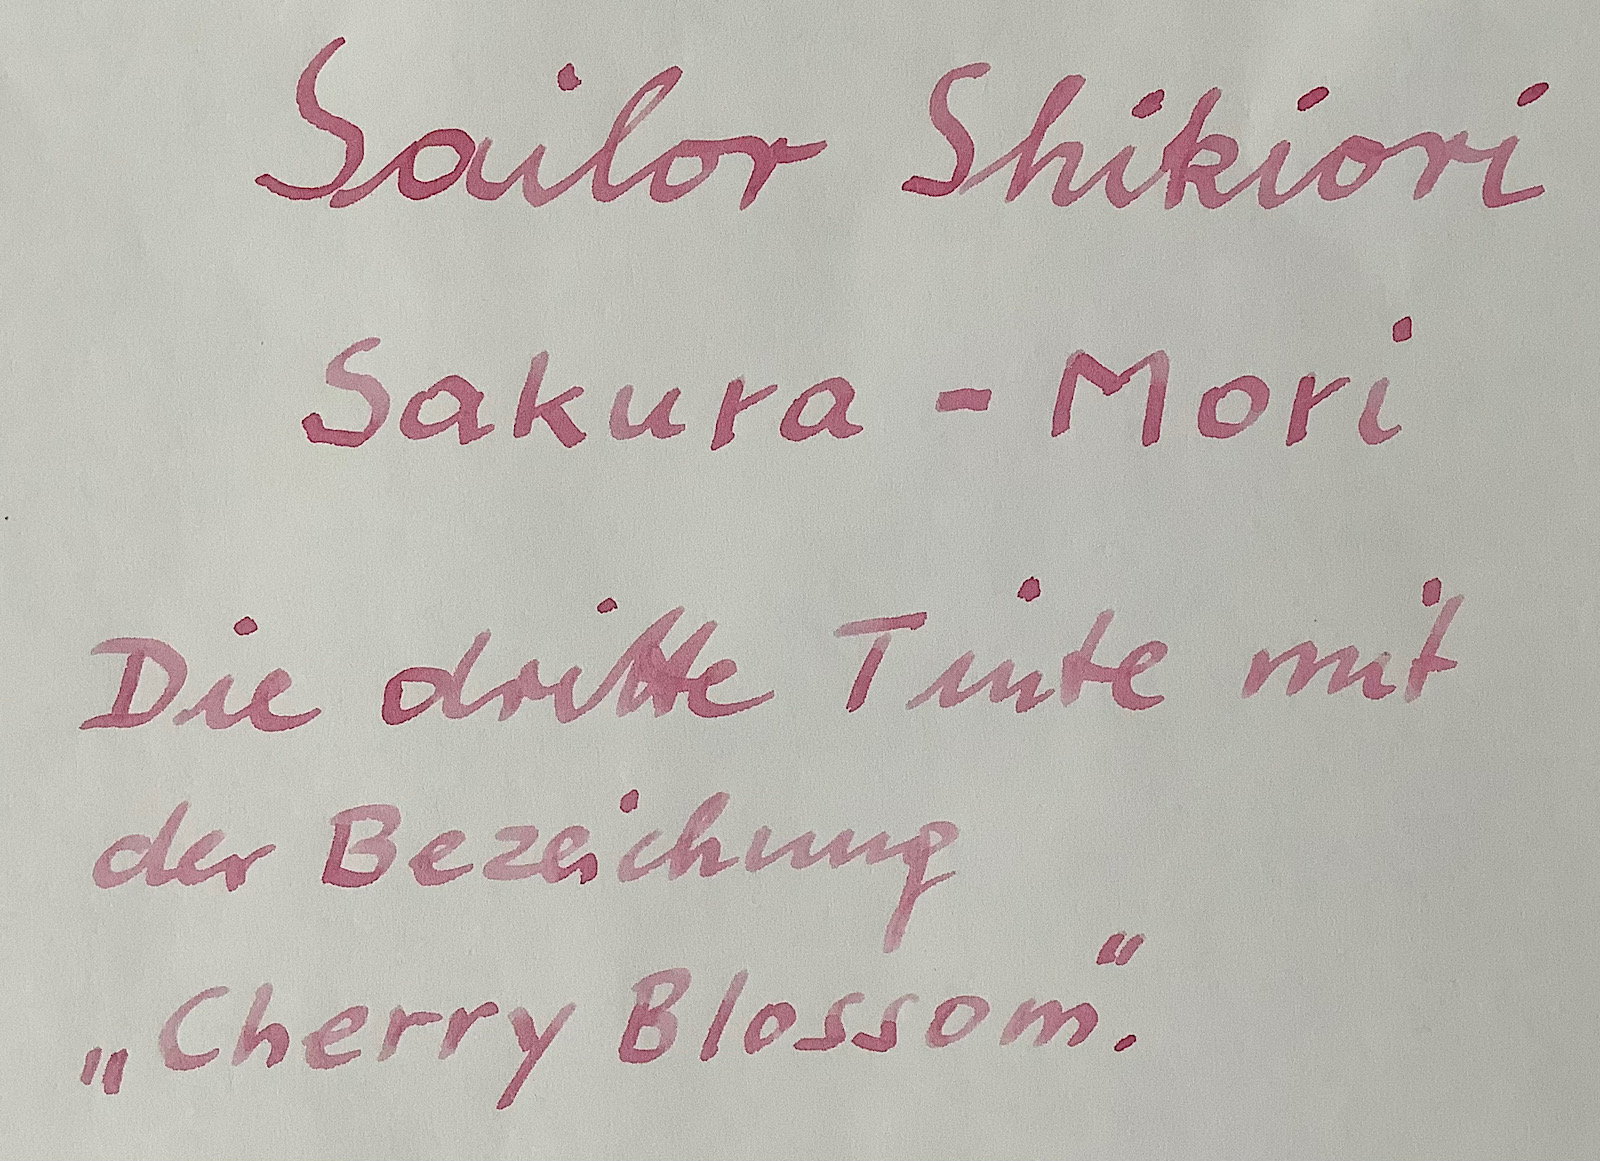 Sailor Shikiori
Sakura - Mori
Die dritte Tinte mit
der Bezeichung
„Cherry Blossom“.